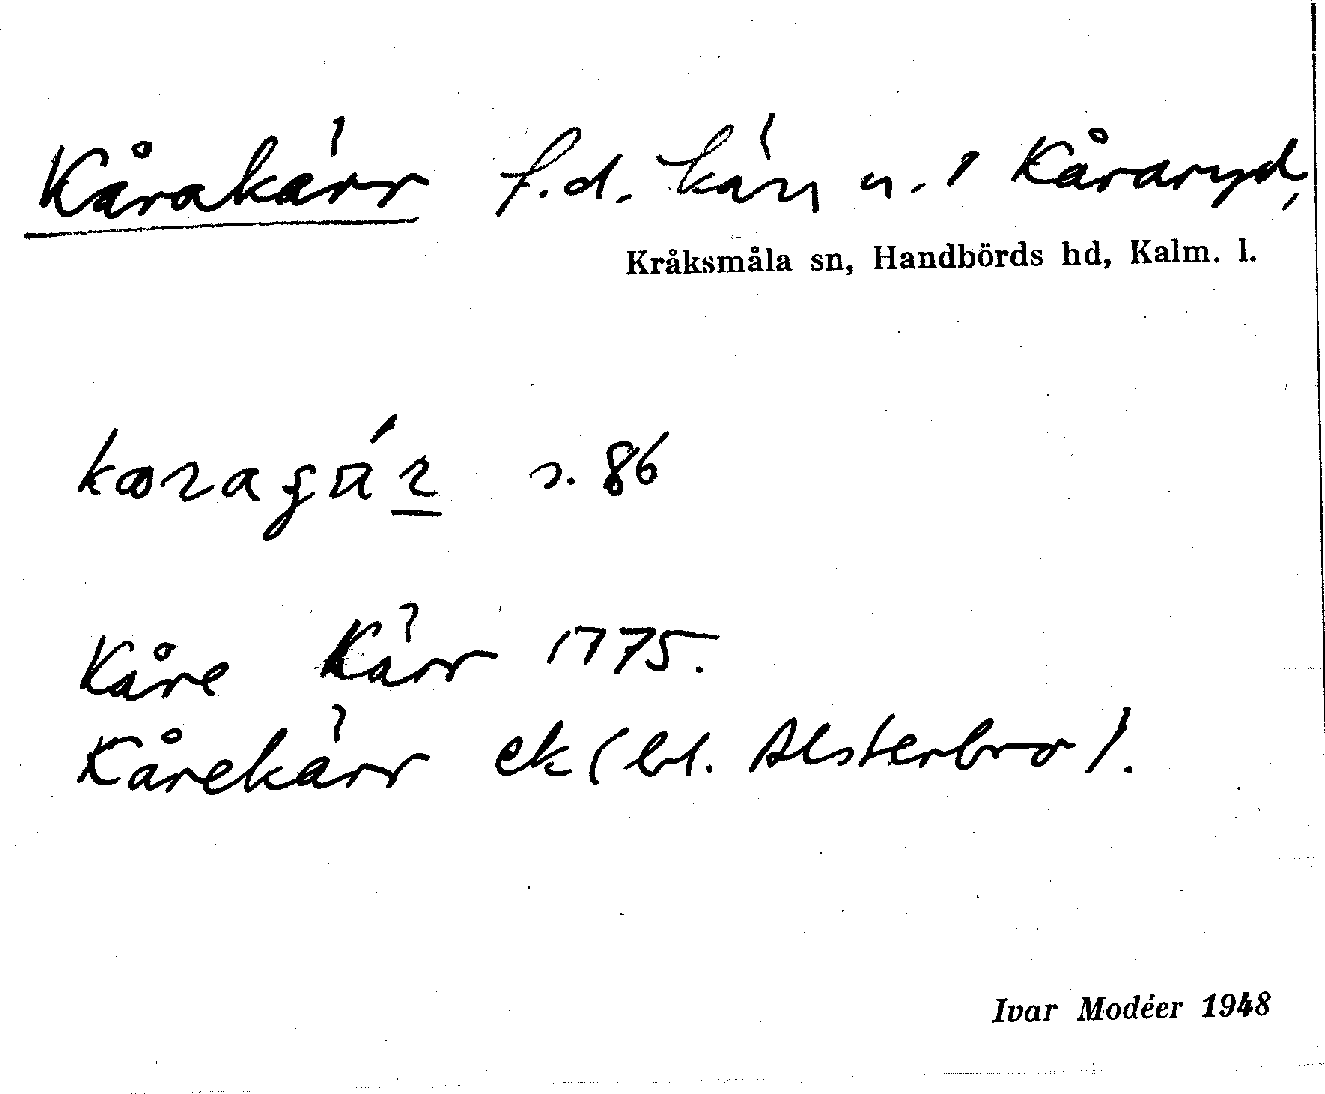 Kårakärr f.d. kärr n. 1 Kåraryd,
Kråksmåla sn, Handbörds hd, Kalm. l.
s. 86
Kåre Kärr 1775.
Kårekärr ek (bl. Alsterbro).
Ivar Modéer 1948